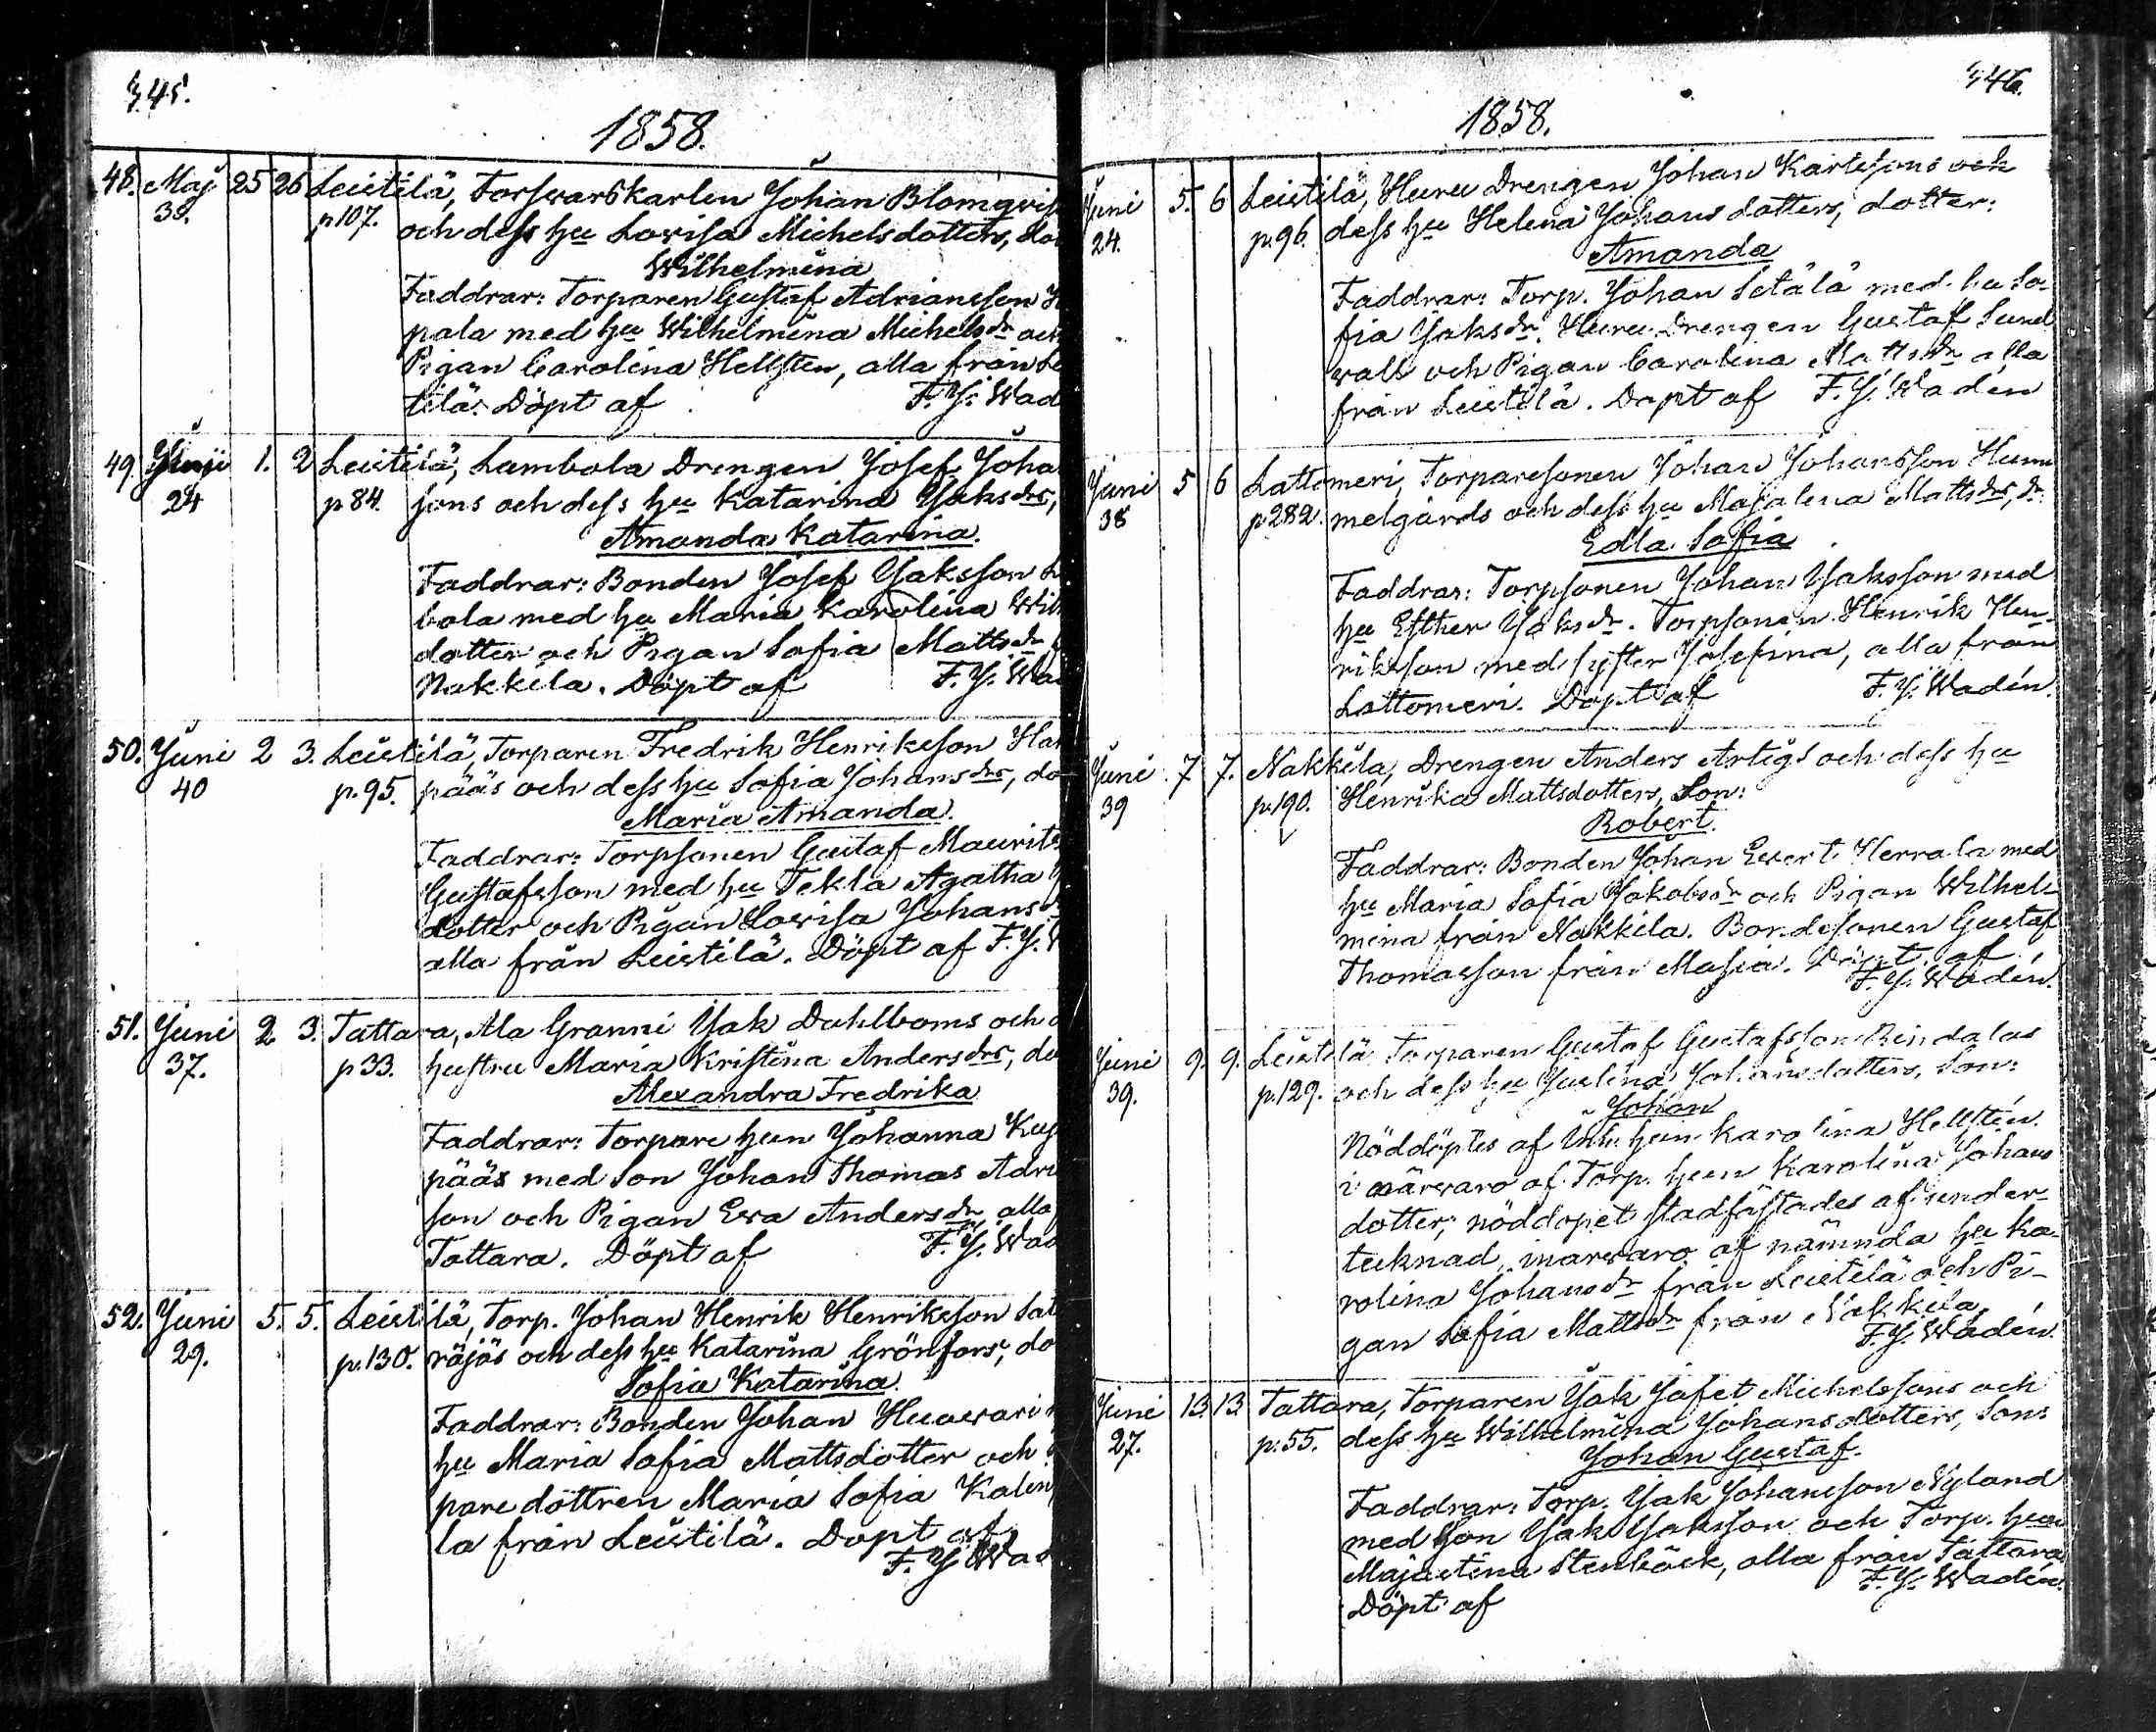 345.
1858.
48. Maj 25 26 Leistilä, Forswarskarlen Johan Blomqvis
39. p107. och dess hu Lovisa Michelsdotters, do
Wilhelmina
Faddrar: Torparen Gustaf Adriansson
pala med hu Wilhelmina Michelsdr och
Pigan Carolina Hellsten, alla från Le
tilä. Döpt af F.J. Wad
49. Juni 1. 2 Leistilä, Lambola Drengen Josef Joha
24 p84. sons och dess hu Katarina Jaksdrs,
Amanda Katarina.
Faddrar: Bonden Josef Jaksson L
bola med hu Maria Karolina Wil
dotter och Pigan Sofia Mattsdr
Nakkila. Döpt af F.J. Wa
50. Juni 2 3. Leistilä, Torparen Fredrik Henriksson Ha
40 p.95. pääs och dess hu Sofia Johansdrs, do
Maria Amanda.
Faddrar: Torpsonen Gustaf Maurits
Gustafsson med hu Tekla Agatha
dotter och Pigan Lovisa Johansd
alla från Leistilä. Döpt af F.J. W
51. Juni 2. 3. Tattara, Ala Granni Jak Dahlboms och
37. p33. hustru Maria Kristina Andersdrs, do
Alexandra Fredrika
Faddrar: Torpare hun Johanna Kus
pääs med son Johan Thomas Adri
son och Pigan Eva Andersdr alla
Tattara. Döpt af F.J. Wad
52. Juni 5. 5. Leistilä, Torp. Johan Henrik Henriksson Sat
29. p.130. räjäs och dess hu Katarina Grönfors, do
Sofia Katarina.
Faddrar: Bonden Johan Huovari
hu Maria Sofia Mattsdotter och
paredottren Maria Sofia Kalen
la från Leistilä. Döpt af
F.J Wad
346.
1858.
Juni 5. 6 Leistilä, Huru Drengen Johan Karlssons och
24. p.96. dess hu Helena Johansdotters, dotter:
Amanda
Faddrar: Torp. Johan Setälä med hu So-
fia Jaksdr. Huru Drengen Gustaf Sund
vall och Pigan Carolina Mattsdr alla
från Leistilä. Döpt af F.J. Wadén
Juni 5 6 Lattomeri, Torparesonen Johan Johansson Hum
38 p282. melgårds och dess hu Majalena Mattsdrs, dr
Edla Sofia
Faddrar: Torpsonen Johan Jaksson med
hu Esther Jaksdr. Torpsonen Henrik Hen-
riksson med syster Josefina, alla från
Lattomeri. Döpt af F.J. Wadén.
Juni 7 7. Nakkila, Drengen Anders Artigs och dess hu
39 p.190. Henrika Mattsdotters, Son:
Robert.
Faddrar: Bonden Johan Evert Herrala med
hu Maria Sofia Jakobsdr och Pigan Wilhel-
mina från Nakkila. Bondesonen Gustaf
Thomasson från Masia. Döpt af
F.J. Wadén.
Juni 9. 9. Leistilä Torparen Gustaf Gustafsson Rindalas
39. p.129. och dess hu Justina Johansdotters, Son:
Johan
Nöddöptes af Inh. hun Karolina Hellstén.
i närvaro af Torp. hun Karolina Johans
dotter; nöddopet stadfästades af under-
tecknad, i närvaro af nämnda hu Ka-
rolina Johansdr från Leistilä och Pi-
gan Sofia Mattsdr från Nakkila.
F.J. Wadén.
Juni 13 13 Tattara, Torparen Jak Jafet Michelssons och
27. p.55. dess hu Wilhelmina Johansdotters, Son:
Johan Gustaf.
Faddrar: Torp. Jak Johansson Nyland
med Son Jak Jaksson och Torp. hun
Majastina Stenbäck, alla från Tattara
F.J. Wadén.
Döpt af